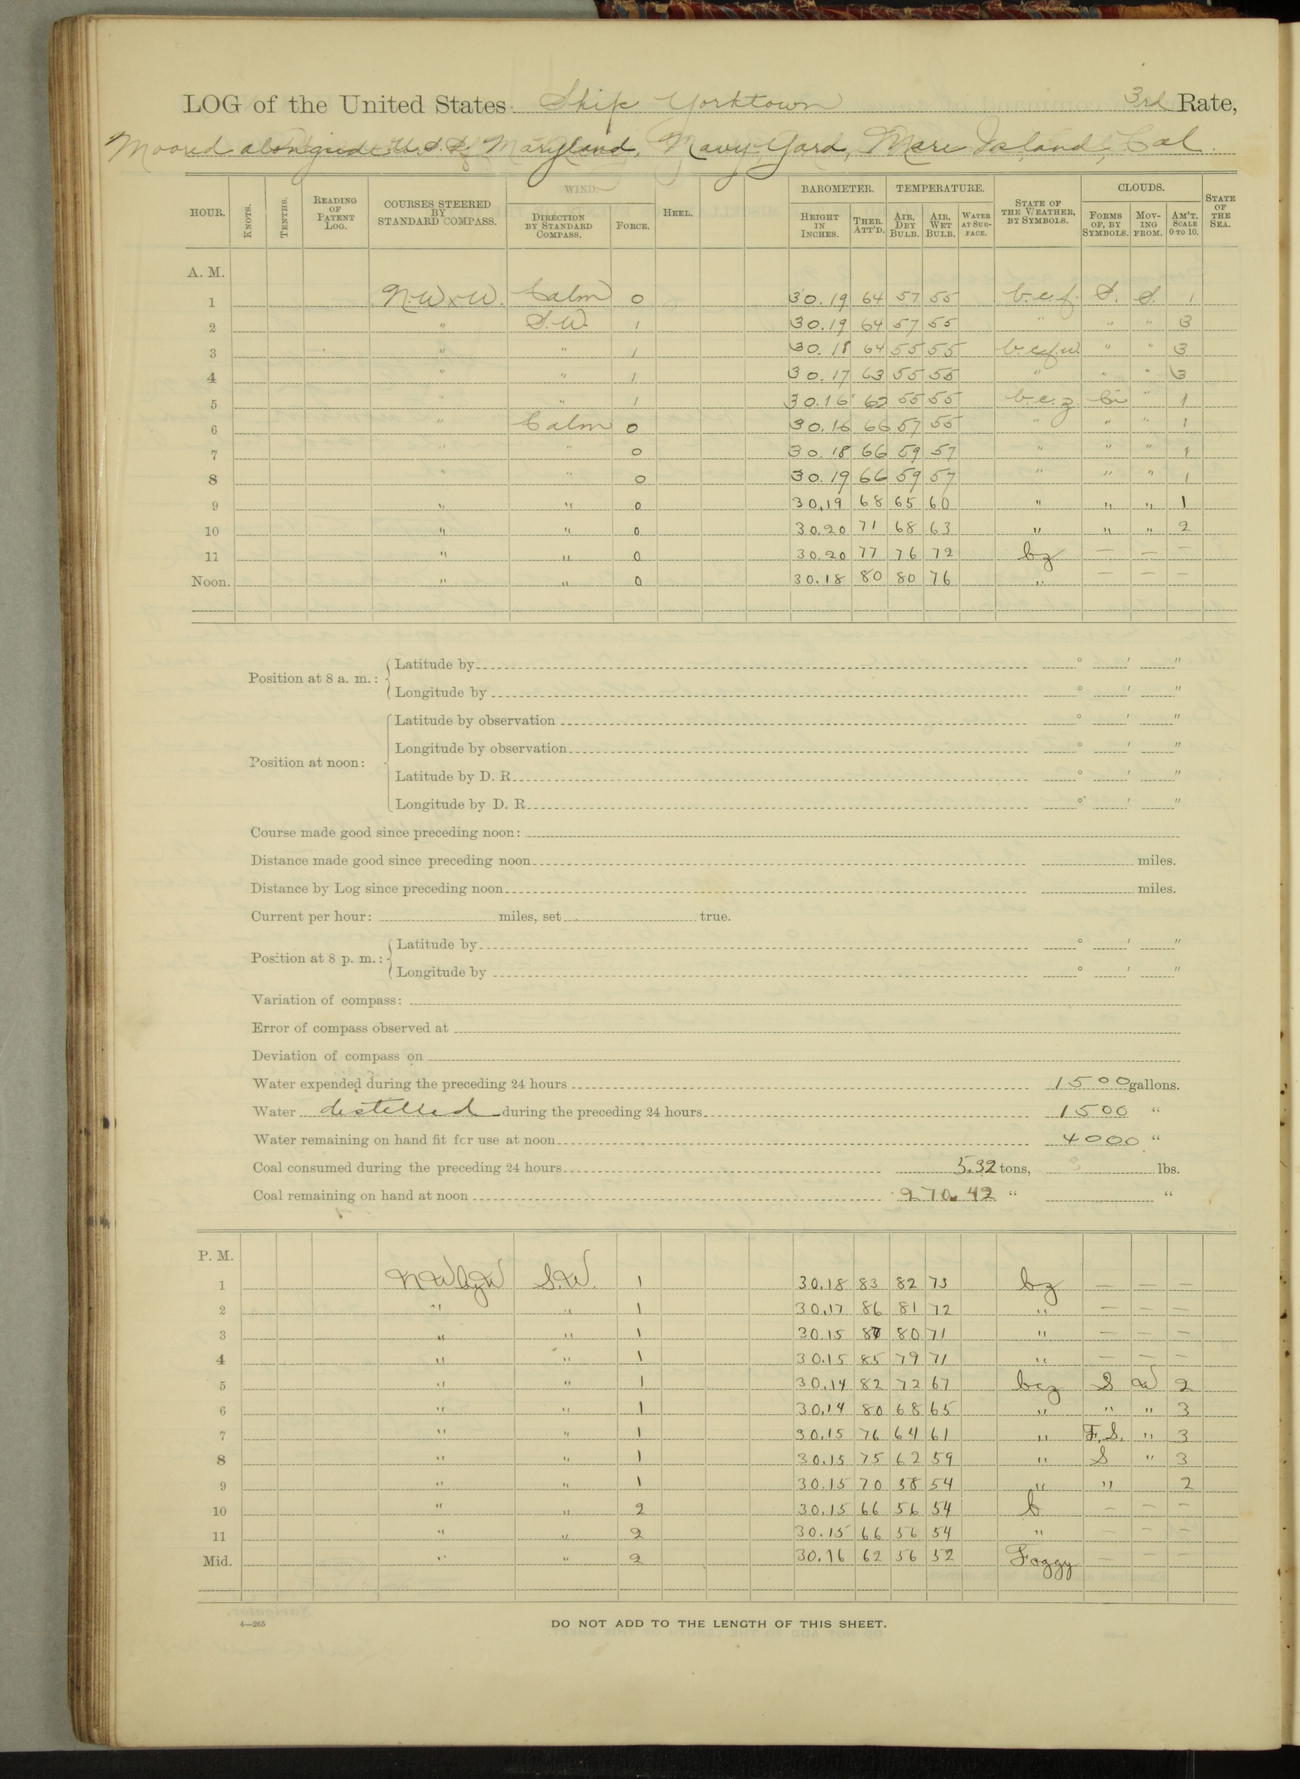 LOG of the United States Ship Yorktown 3rd Rate,
Moored alongside U.S.S. Maryland, Navy-Yard, Mare Island, Cal.
HOUR. KNOTS. TENTHS. READING OF PATENT LOG. COURSES STEERED BY STANDARD COMPASS. WIND. DIRECTION BY STANDARD COMPASS. FORCE. HEEL. BAROMETER. HEIGHT IN INCHES. THER. ATT'D. TEMPERATURE. AIR, DRY BULB. AIR, WET BULB. WATER AT SURFACE. STATE OF THE WEATHER, BY SYMBOLS. CLOUDS. FORMS OF, BY SYMBOLS. MOVING FROM. AM'T. SCALE 0 TO 10. STATE OF THE SEA.
A. M.
1 N.W.xW. Calm 0 30.19 64 57 55 b.c.f. S. S. 1
2 " S.W. 1 30.19 64 57 55 " " " 3
3 " " 1 30.18 64 55 55 b.c.f.w. " " 3
4 " " 1 30.17 63 55 55 " " " 3
5 " " 1 30.16 62 55 55 b.c.z. Ci " 1
6 " Calm 0 30.16 66 57 55 " " " 1
7 " " 0 30.18 66 59 57 " " " 1
8 " " 0 30.19 66 59 57 " " " 1
9 " " 0 30.19 68 65 60 " " " 1
10 " " 0 30.20 71 68 63 " " " 2
11 " " 0 30.20 77 76 72 bz — — —
Noon. " " 0 30.18 80 80 76 " — — —
Position at 8 a. m.: Latitude by ° ' "
Longitude by ° ' "
Position at noon: Latitude by observation ° ' "
Longitude by observation ° ' "
Latitude by D. R. ° ' "
Longitude by D. R. ° ' "
Course made good since preceding noon:
Distance made good since preceding noon miles.
Distance by Log since preceding noon miles.
Current per hour: miles, set true.
Position at 8 p. m.: Latitude by ° ' "
Longitude by ° ' "
Variation of compass:
Error of compass observed at
Deviation of compass on
Water expended during the preceding 24 hours 1500 gallons.
Water distilled during the preceding 24 hours 1500 "
Water remaining on hand fit for use at noon 4000 "
Coal consumed during the preceding 24 hours 5.32 tons, lbs.
Coal remaining on hand at noon 270.42 " "
P. M.
1 NWbyW S.W. 1 30.18 83 82 73 bz — — —
2 " " 1 30.17 86 81 72 " — — —
3 " " 1 30.15 87 80 71 " — — —
4 " " 1 30.15 85 79 71 " — — —
5 " " 1 30.14 82 72 67 bcz S W 2
6 " " 1 30.14 80 68 65 " " " 3
7 " " 1 30.15 76 64 61 " F.S. " 3
8 " " 1 30.15 75 62 59 " S " 3
9 " " 1 30.15 70 58 54 " " 2
10 " " 2 30.15 66 56 54 b — — —
11 " " 2 30.15 66 56 54 " — — —
Mid. " " 2 30.16 62 56 52 Foggy — — —
4—265
DO NOT ADD TO THE LENGTH OF THIS SHEET.